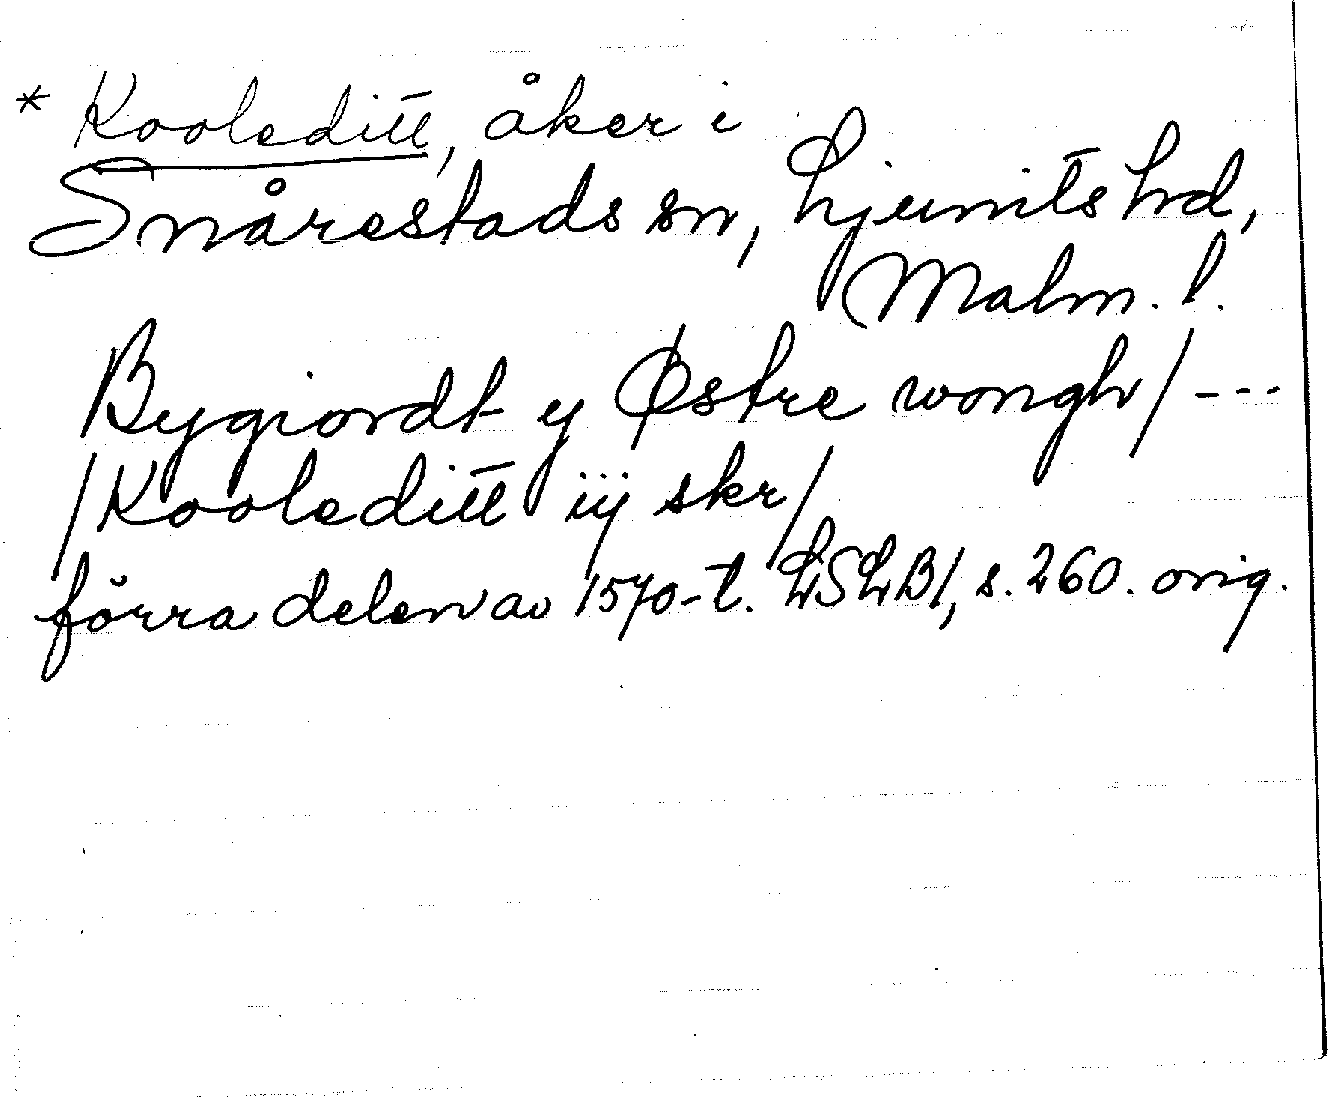 * Kooleditt, åker i
Snårestads sn, Ljunits hd,
Malm. l.
Bygiordt y Østre wongh/ ---
/Kooleditt iij skr/
förra delen av 1570-t. LSLB1, s. 260. orig.